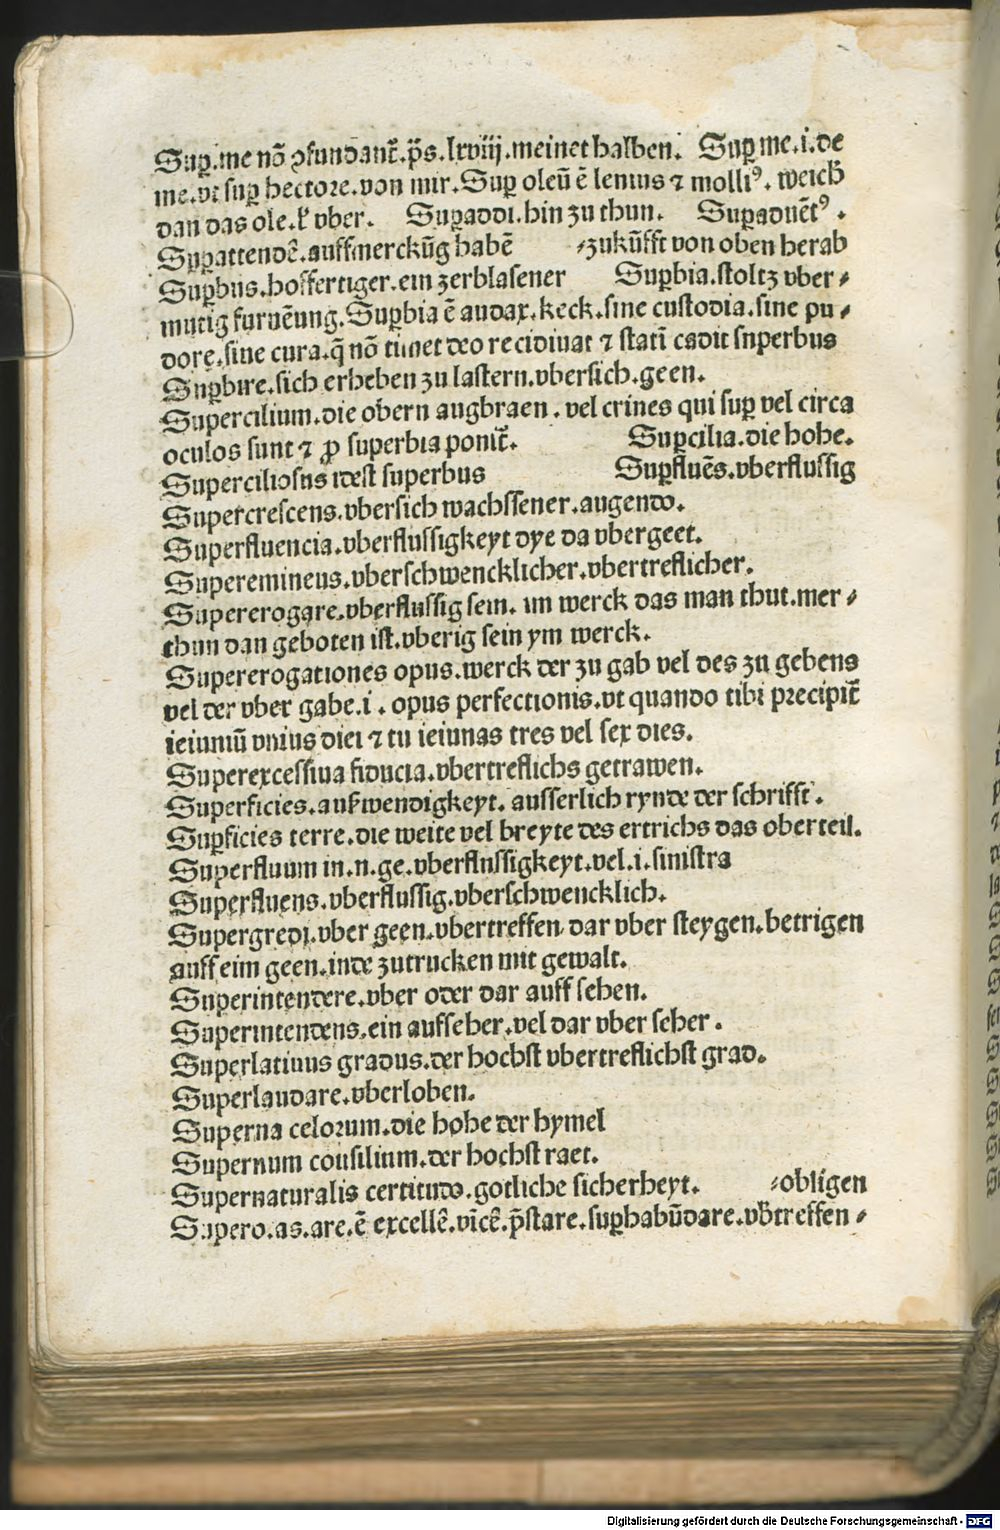 Suꝑ.me nō ꝯfundant̄.p̄s.lxviij.meinethalben. Suꝑ me.i.de
me.vt suꝑ hectore.von mir.Suꝑ oleū ē lenius ⁊ molliꝰ.weich
dan das ole.ł vber. Suꝑaddi.hin zu thun. Suꝑaduētꝰ.
Suꝑattendē.auffmerckūg habē ⸗zukūfft von oben herab
Suꝑbus.hoffertiger.ein zerblasener Suꝑbia.stoltz vber⸗
mutig furnēung.Suꝑbia ē audax.keck.sine custodia.sine pu⸗
dore.sine cura.q̄ nō timet deo recidiuat ⁊ stati cadit superbus
Suꝑbire.sich erheben zu lastern.vbersich.geen.
Supercilium.die obern augbraen.vel crines qui suꝑ vel circa
oculos sunt ⁊ ꝓ superbia ponit̄. Suꝑcilia.die hohe.
Superciliosus idest superbus Suꝑfluēs.vberflussig
Supercrescens.vbersich wachssener.augendo.
Superfluencia.vberflussigkeyt dye da vbergeet.
Supereminens.vberschwencklicher.vbertreflicher.
Supererogare.vberflussig sein. im werck das man thut.mer⸗
thun dan geboten ist.vberig sein ym werck.
Supererogationes opus.werck der zu gab vel des zu gebens
vel der vber gabe.i. opus perfectionis.vt quando tibi precipit̄
ieiuniū vnius diei ⁊ tu ieiunas tres vel sex dies.
Superexcessiua fiducia.vbertreflichs getrawen.
Superficies.außwendigkeyt. ausserlich rynde der schrifft.
Suꝑficies terre.die weite vel breyte des ertrichs das oberteil.
Superfluum in.n.ge.vberflussigkeyt.vel.i.sinistra
Superfluens.vberflussig.vberschwencklich.
Supergredi.vber geen.vbertreffen dar vber steygen.betrigen
auff eim geen.inde zutrucken mit gewalt.
Superintendere.vber oder dar auff sehen.
Superintendens.ein aufseher.vel dar vber seher.
Superlatiuus gradus.der hochst vbertreflichst grad.
Superlaudare.vberloben.
Superna celorum.die hohe der hymel
Supernum consilium.der hochst raet.
Supernaturalis certitudo.gotliche sicherheyt. ⸗obligen
Supero.as.are.ē excellē.vīcē.p̄stare.suꝑhabūdare.vb̄treffen⸗
Digitalisierung gefördert durch die Deutsche Forschungsgemeinschaft - DFG